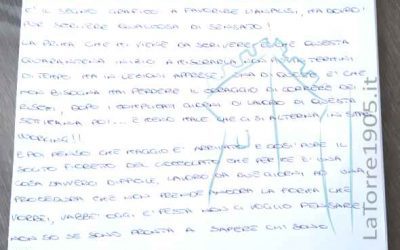 E' IL SEGNO GRAFICO A FAVORIRE L'ANALISI, MA DOVRO'
PUR SCRIVERE QUALCOSA DI SENSATO!
LA PRIMA CHE MI VIENE DA SCRIVERE E' CHE QUESTA
QUARANTENA INIZIO A MISURARLA NON PIU' IN TERMINI
DI TEMPO MA IN LEZIONI APPRESE. UNA DI QUESTE E' CHE
NON BISOGNA MAI PERDERE IL CORAGGIO DI CORRERE DEI
RISCHI, DOPO I COMPLICATI GIORNI DI LAVORO DI QUESTA
SETTIMANA POI... E MENO MALE CHE CI SI ALTERNA IN SMART
WORKING!!
E POI PENSO CHE MAGGIO E' ARRIVATO E COSI' PURE IL
SOLITO FIORETTO DEL CIOCCOLATO CHE PER ME E' UNA
COSA DAVVERO DIFFICILE, LAVORO DA DUE GIORNI AD UNA
PROCEDURA CHE NON PRENDE ANCORA LA FORMA CHE
VORREI, VABBE' OGGI E' FESTA NON CI VOGLIO PENSARE
NON SO SE SONO PRONTA A SAPERE CHI SONO
LaTorre1905.it